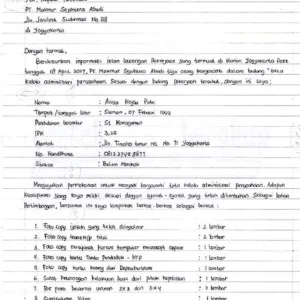 PT. Makmur Sejahtera Abadi
Jln. Jendral Sudirman No. 88
di Yogyakarta
Dengan hormat,
Berdasarkan informasi iklan lowongan Pekerjaan yang termuat di Harian Yogyakarta Post
tanggal 18 April 2017, PT. Makmur Sejahtera Abadi
tata kelola administrasi perusahaan. Sesuai dengan bidang pekerjaan tersebut, dengan ini,
Nama :
Tempat/tanggal lahir : Sleman, 07 Februari
Pendidikan terakhir : S1 Manajemen
IPK :
Alamat : Jln. Timoho timur no. 71 Yogyakarta
No. Handphone :
Status : Belum Menikah
Mengajukan permohonan untuk mengisi lowongan tata kelola administrasi perusahaan. Adapun
kualifikasi yang saya miliki sesuai dengan syarat-syarat yang telah ditentukan. Sebagai bahan
Pertimbangan, bersama ini saya lampirkan berkas-berkas sebagai berikut :
1. Foto copy ijazah yang telah dilegalisir : 2 lembar
2. Foto copy transkrip nilai : 2 lembar
3. Foto copy sertifikat kursus komputer microsoft office : 1 lembar
4. Foto copy Kartu Tanda Penduduk - KTP : 1 lembar
5. Foto copy kartu kuning dari : 1 lembar
6. Surat keterangan kelakuan baik dari pihak kepolisian : 1 lembar
7. Pas foto berwarna ukuran 2x3 dan 3x4 : 2 lembar
8. Curriculum Vitae